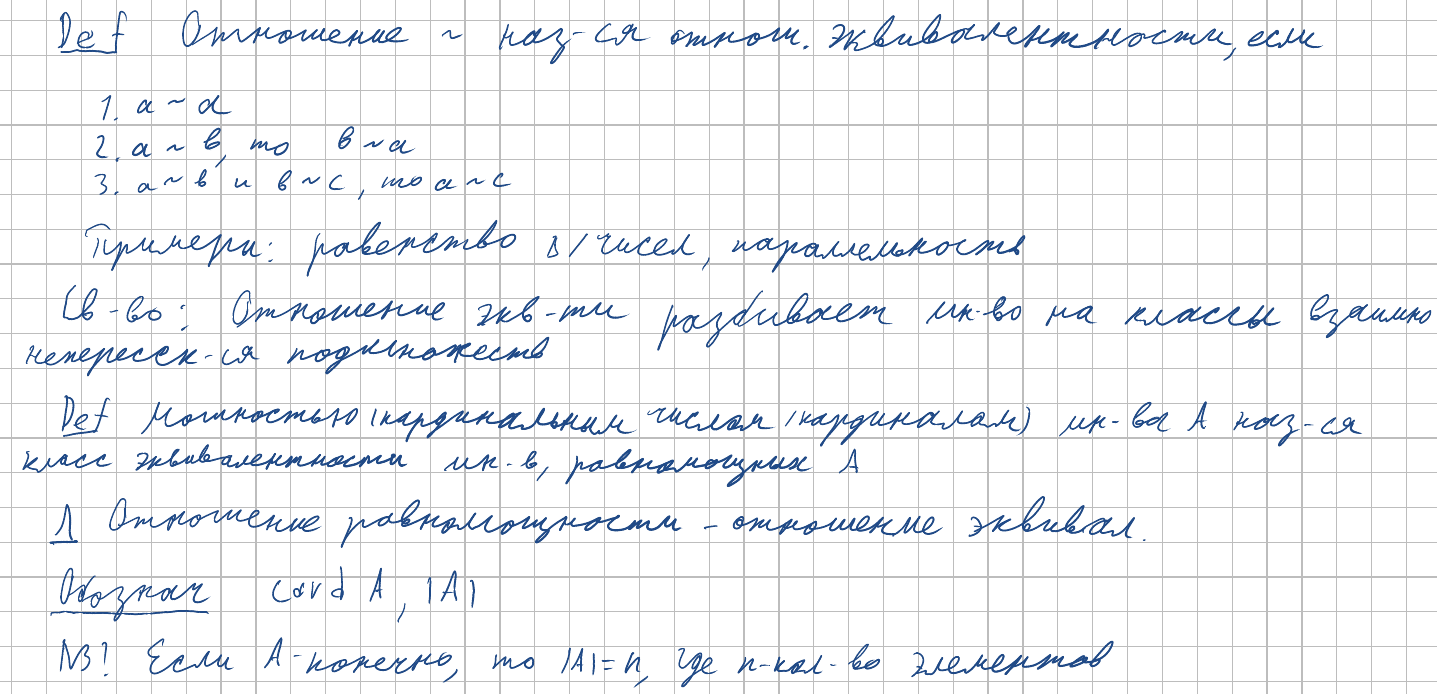 Def Отношение ~ наз-ся отнош. эквивалентности, если
1. a ~ a
2. a ~ b, то b ~ a
3. a ~ b и b ~ c, то a ~ c
Примеры: равенство в/чисел, параллельность
Св-во: Отношение экв-ти разбивает мн-во на классы взаимно
непересек-ся подмножеств
Def Мощностью (кардинальным числом / кардиналом) мн-ва A наз-ся
класс эквивалентности мн-в, равномощных A
Л Отношение равномощности - отношение эквивал.
Обознач card A, |A|
NB! Если A-конечно, то |A|=n, где n-кол-во элементов